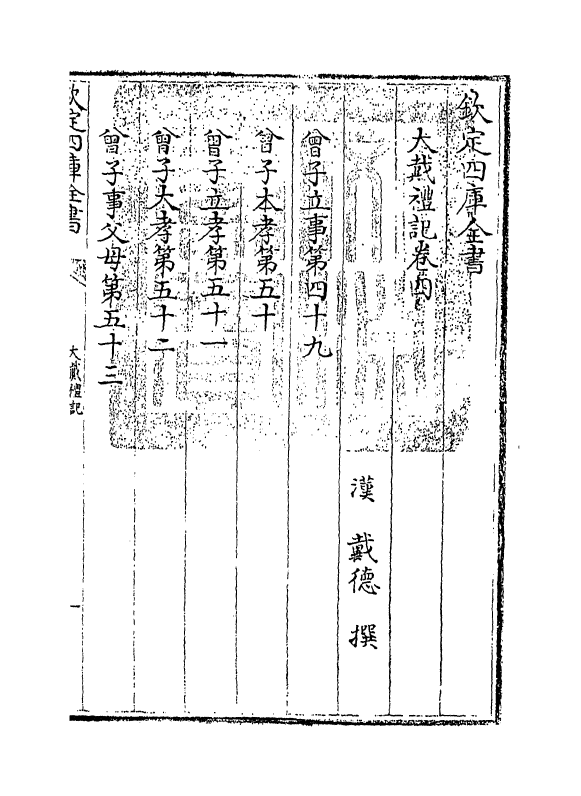 欽定四庫全書
大戴禮記卷四
漢 戴德 撰
曾子立事第四十九
曾子本孝第五十
曾子立孝第五十一
曾子大孝第五十二
曾子事父母第五十三
欽定四庫全書
大戴禮記
一